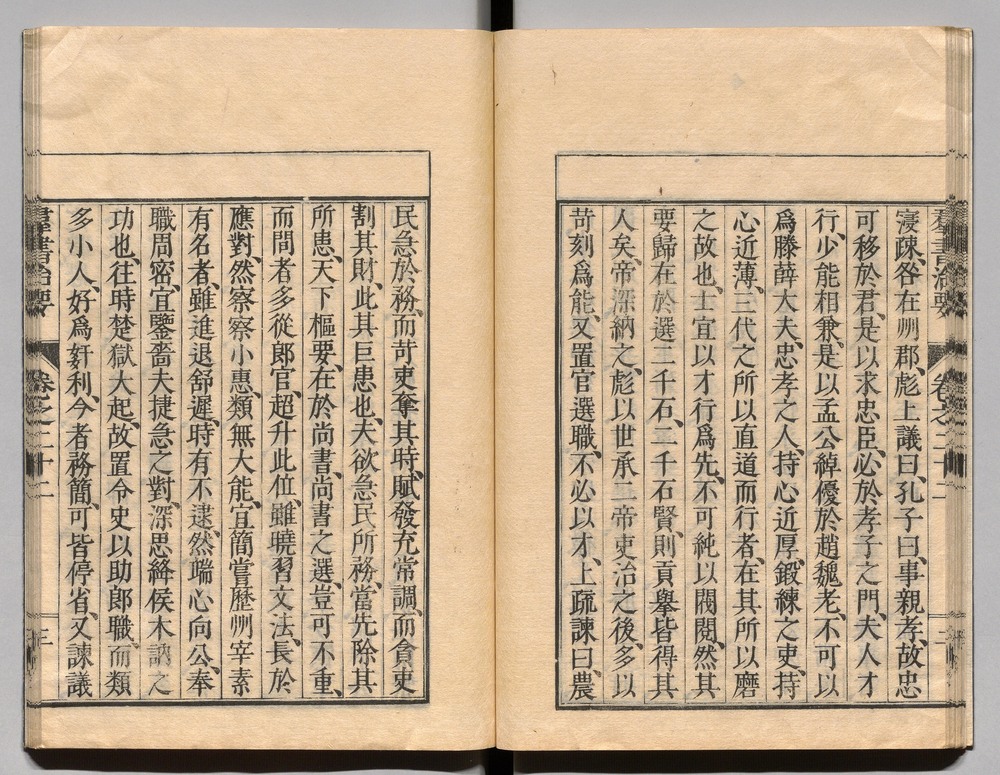 羣書治要 卷之二十二
寖疎、咎在州郡、彪上議曰、孔子曰、事親孝、故忠
可移於君、是以求忠臣、必於孝子之門、夫人才
行、少能相兼、是以孟公綽優於趙魏老、不可以
爲滕薛大夫、忠孝之人、持心近厚、鍛練之吏、持
心近薄、三代之所以直道而行者、在其所以磨
之故也、士宜以才行爲先、不可純以閥閱、然其
要歸在於選二千石、二千石賢、則貢擧皆得其
人矣、帝深納之、彪以世承二帝吏治之後、多以
苛刻爲能、又置官選職、不必以才、上疏諫曰、農
民急於務、而苛吏奪其時、賦發充常調、而貪吏
割其財、此其巨患也、夫欲急民所務、當先除其
所患、天下樞要、在於尚書、尚書之選、豈可不重、
而間者多從郎官、超升此位、雖曉習文法、長於
應對、然察察小惠、類無大能、宜簡嘗歷州宰素
有名者、雖進退舒遲、時有不逮、然端心向公、奉
職周密、宜鑒嗇夫捷急之對、深思絳侯木訥之
功也、往時楚獄大起、故置令史以助郎職、而類
多小人、好爲姧利、今者務簡、可皆停省、又諫議
羣書治要 卷之二十二 三